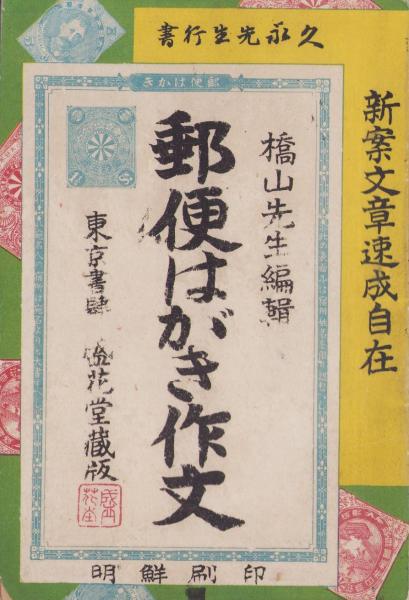 久永先生行書
新案文章速成自在
郵便はかき
橋山先生編輯
郵便はがき作文
東京書肆 盛花堂藏版
印刷鮮明